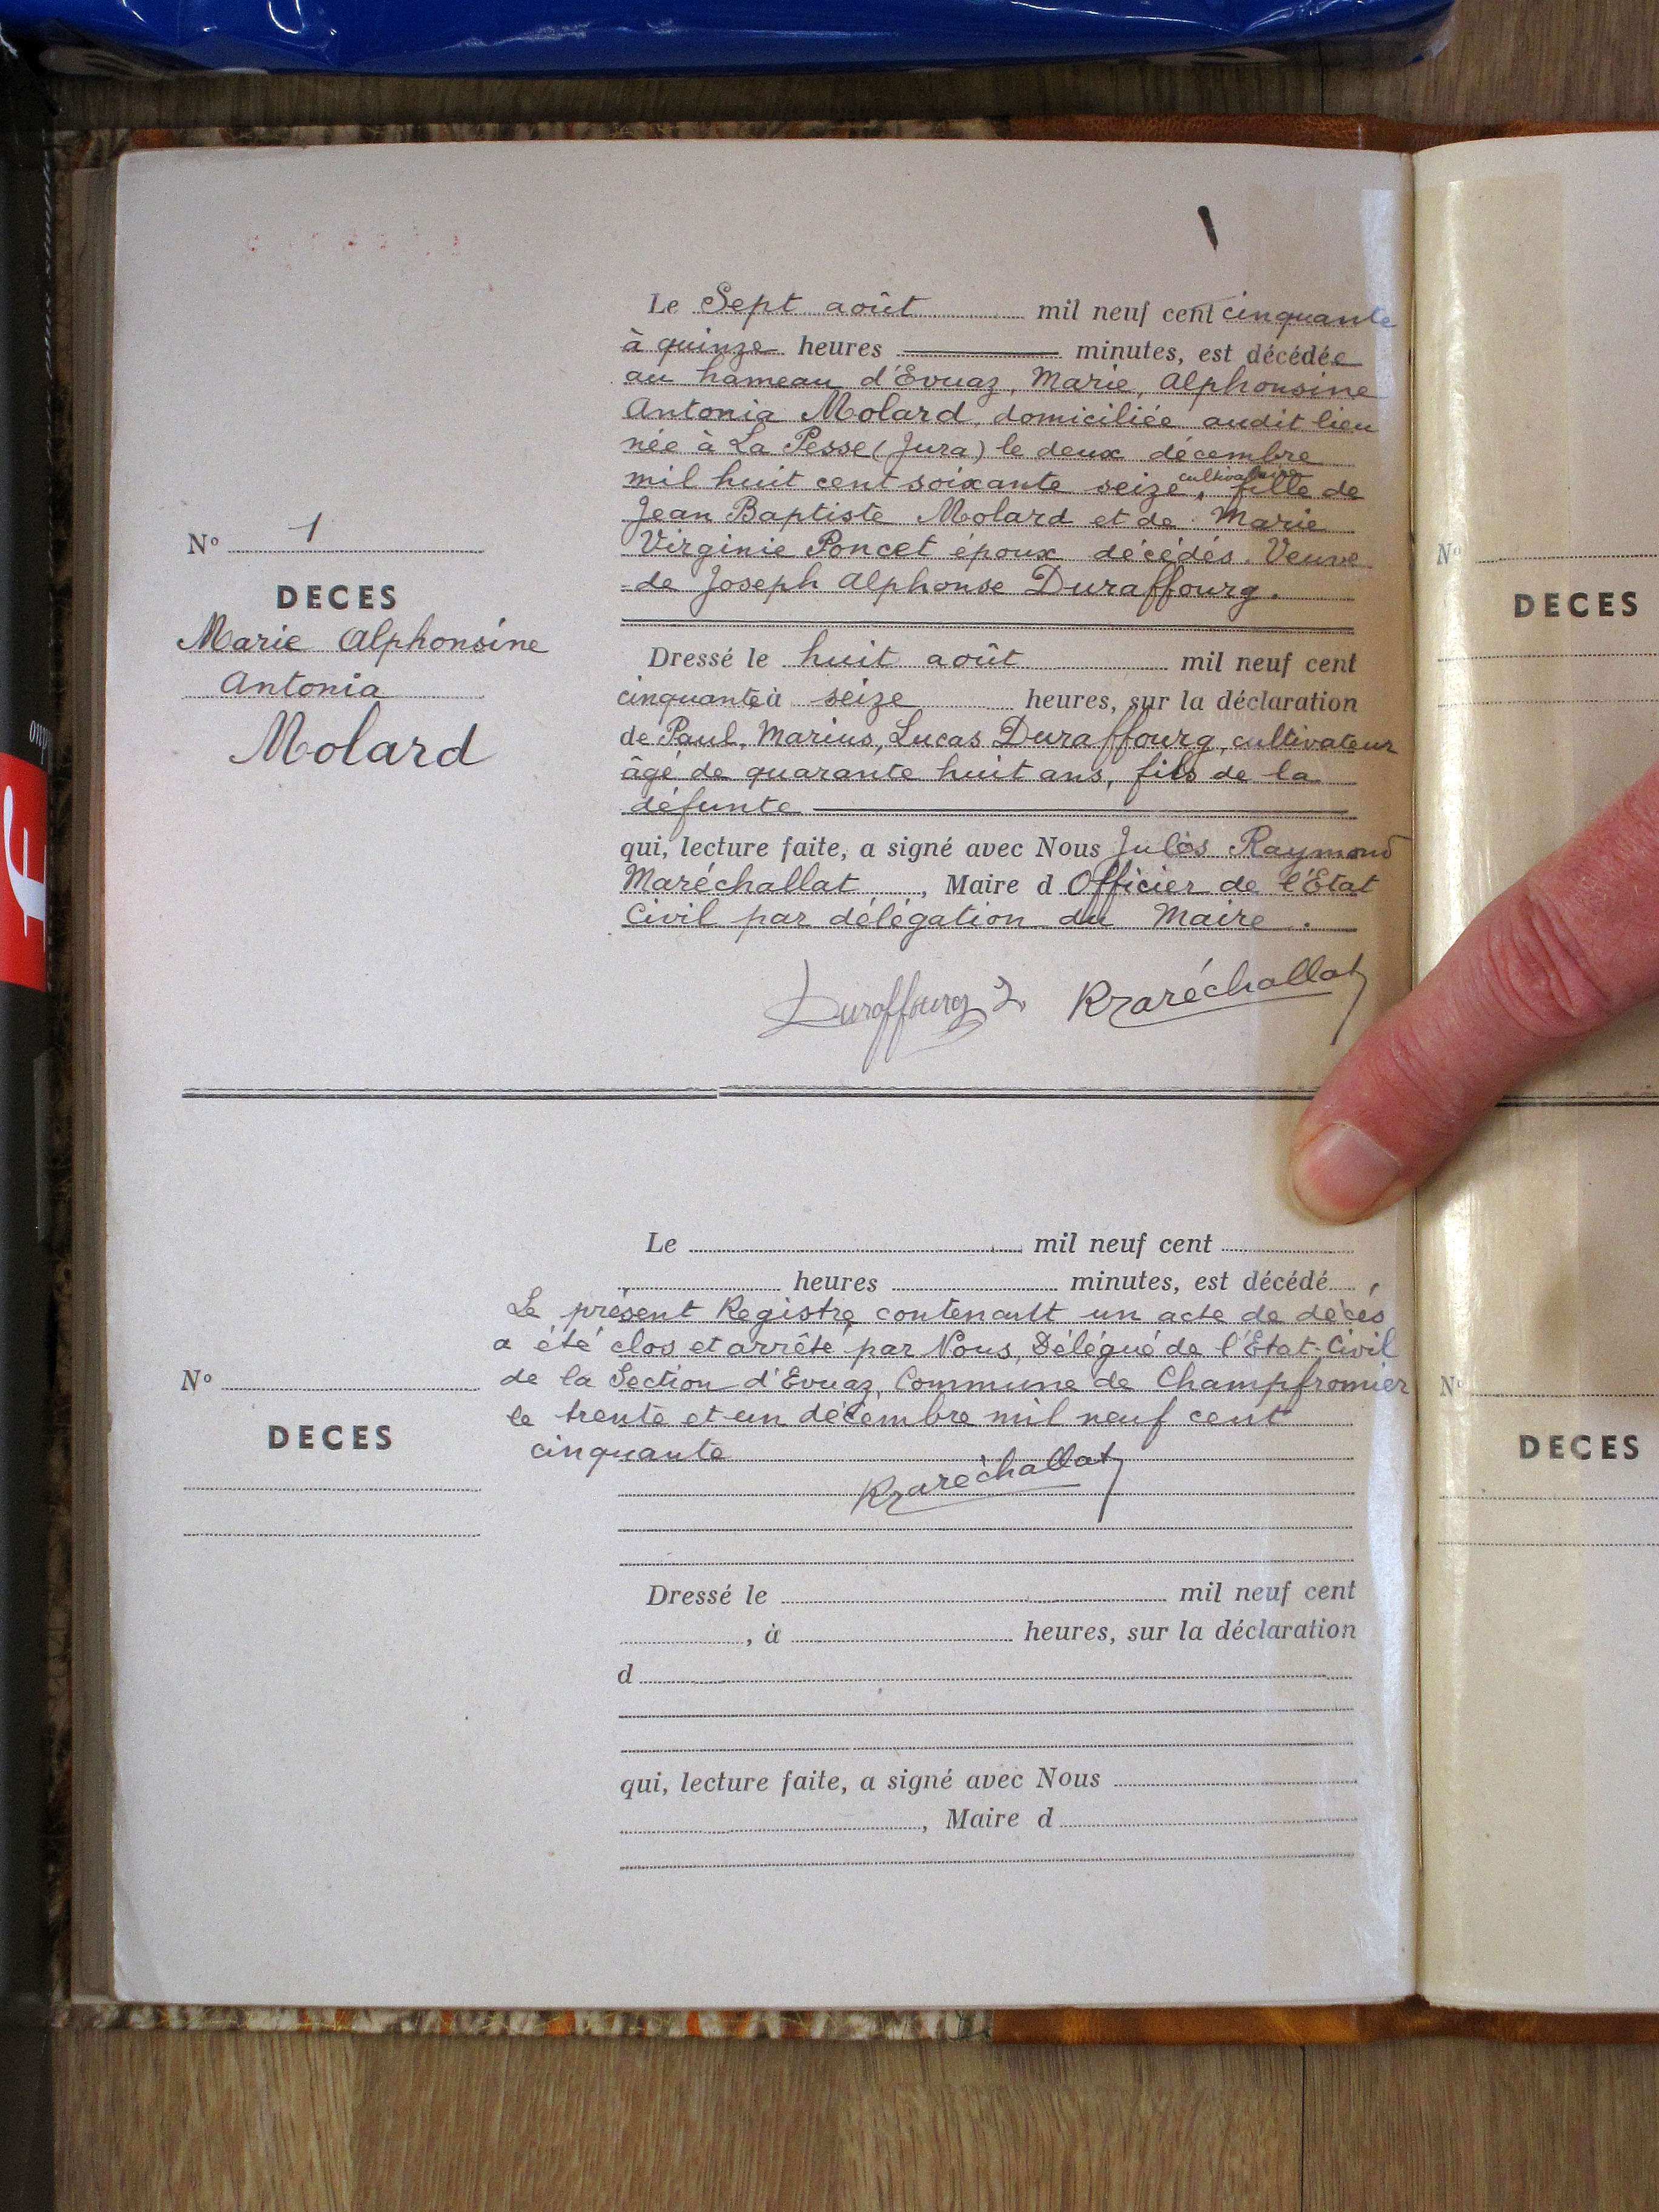 Le Sept août mil neuf cent cinquante
à quinze heures minutes, est décédée
au hameau d'Evuaz, Marie, Alphonsine
Antonia Molard, domiciliée audit lieu
née à La Pesse (Jura) le deux décembre
cultivatrice
mil huit cent soixante seize, fille de
Jean Baptiste Molard et de Marie
Virginie Poncet époux décédés. Veuve
de Joseph Alphonse Duraffourg.
N° 1
DECES
Marie Alphonsine
Antonia
Molard
Dressé le huit août mil neuf cent
cinquante à seize heures, sur la déclaration
de Paul, Marius, Lucas Duraffourg, cultivateur
âgé de quarante huit ans, fils de la
défunte
qui, lecture faite, a signé avec Nous Jules Raymond
Maréchallat, Maire d Officier de l'Etat
Civil par délégation du Maire.
Duraffourg Maréchallat
Le mil neuf cent
heures minutes, est décédé
Le présent Registre contenant un acte de décès,
a été clos et arrêté par Nous, Délégué de l'Etat-Civil
de la Section d'Evuaz, Commune de Champfromier
le trente et un décembre mil neuf cent
cinquante
Maréchallat
N°
DECES
Dressé le mil neuf cent
, à heures, sur la déclaration
d
qui, lecture faite, a signé avec Nous
, Maire d
N°
DECES
N°
DECES